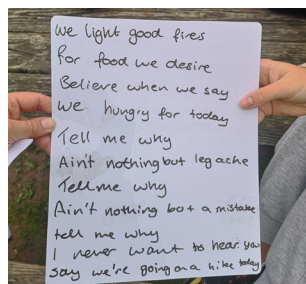 We light good fires
for food we desire
Believe when we say
we hungry for today
Tell me why
Ain't nothing but leg ache
Tell me why
Ain't nothing but a mistake
tell me why
I never want to hear you
say we're going on a hike today